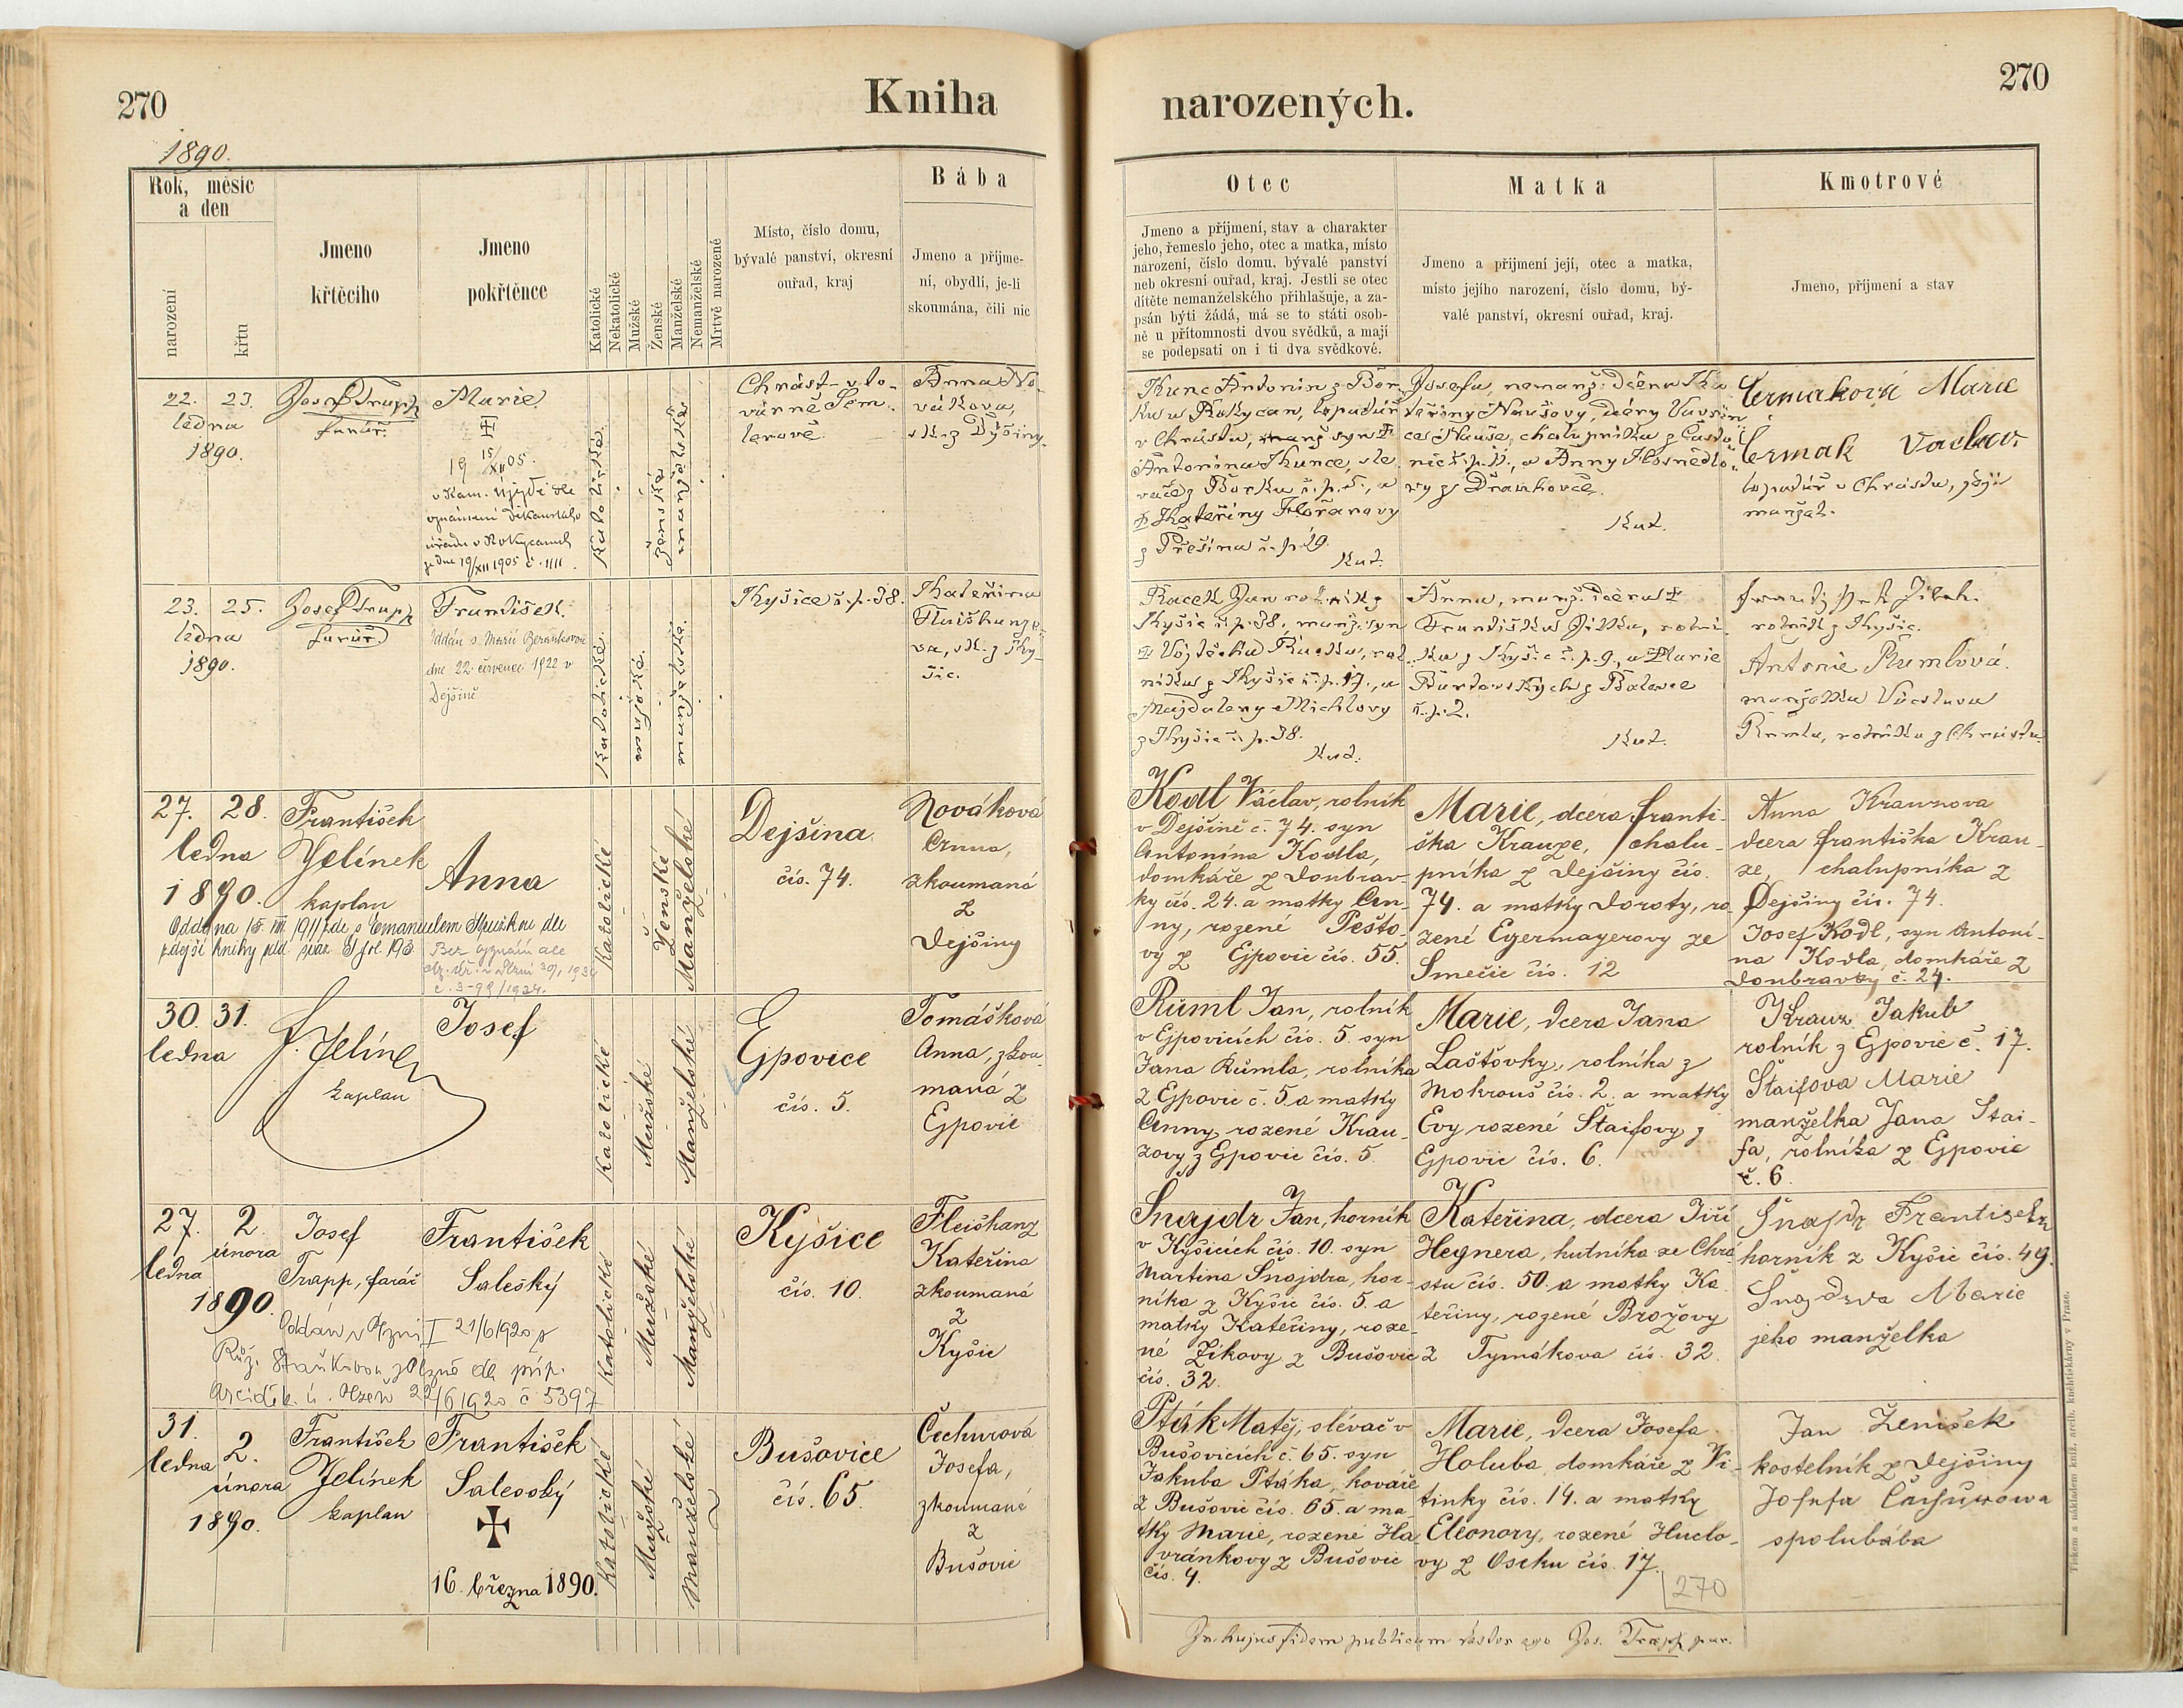 270
Kniha
narozených.
270
1890.
Rok, měsíc
a den
narození
křtu
Jmeno
křtěcího
Jmeno
pokřtěnce
Katolické
Nekatolické
Mužské
Ženské
Manželské
Nemanželské
Mrtvě narozené
Místo, číslo domu,
bývalé panství, okresní
ouřad, kraj
Bába
Jmeno a příjme-
ní, obydlí, je-li
skoumána, čili nic
Otec
Jmeno a příjmení, stav a charakter
jeho, řemeslo jeho, otec a matka, místo
narození, číslo domu, bývalé panství
neb okresní ouřad, kraj. Jestli se otec
dítěte nemanželského přihlašuje, a za-
psán býti žádá, má se to státi osob-
ně u přítomnosti dvou svědků, a mají
se podepsati on i ti dva svědkové.
Matka
Jmeno a příjmení její, otec a matka,
místo jejího narození, číslo domu, bý-
valé panství, okresní ouřad, kraj.
Kmotrové
Jmeno, příjmení a stav
22. 23.
ledna
1890.
Josef Trapp
farář.
Marie
19 15/XII 05.
v Kam. Újezdě dle
oznámení děkanského
úřadu v Rokycanech
ze dne 19/XII 1905 č. 1111.
Katolické.
ženské
manželské
Chrást - v to-
várně Sem-
lerově.
Anna No-
váková,
sk. z Dýšiny.
Kunc Antonín z Bor-
ku u Rokycan, topič
v Chrástu, manž. syn
Antonína Kunce, sle-
vače z Borku č. p. 5., a
Kateřiny Floriánovy
z Přešína č. p. 29.
Kat.
Josefa, nemanž. dcera Ka-
teřiny Naušovy, dcery Vavřin-
ce Nauše, chalupníka z
č. p. 11., a Anny
vy z Drahkovce.
Kat.
Čermaková Marie
Čermak Vaclav
v Chrástu, její
manžel.
23. 25.
ledna
1890.
Josef Trapp
farář
František.
Oddán s Marií Beránkovou
dne 22. července 1922 v
Dejšině
Katolické.
mužské.
manželské.
Kyšice č. p. 38.
Kateřina
Flaišhanze-
va, sk. z Ky-
šic.
Racek Jan rolník z
Kyšic č. p. 38., manž. syn
Vojtěcha Racka, rol-
níka z Kyšic č. p. 17., a
Majdaleny Michlovy
z Kyšic č. p. 38.
Kat.
Anna, manž. dcera
Františka Jílka, rolní-
ka z Kyšic č. p. 9., a Marie
z
č. p. 2.
Kat.
rolník z Kyšic.
Antonie Rumlová.
manželka Václava
Rumla, rolníka z Chrástu.
27. 28.
ledna
1890.
František
Jelínek
kaplan
Anna
Oddána 15. VIII. 1911 zde s Emanuelem dle
zdejší knihy odd. svaz. 5 fol. 193
Bez vyznání dle
30/1 1924
č. 3-99/1924.
Katolické
Ženské
Manželské
Dejšina
čís. 74.
Nováková
Anna,
zkoumaná
z
Dejšiny
Kodl Václav, rolník
v Dejšině č. 74. syn
Antonína Kodla,
domkáře z Doubrav-
ky čís. 24. a matky An-
ny, rozené Pešto-
vy z Ejpovic čís. 55.
Marie, dcera Franti-
ška Krauze, chalu-
pníka z Dejšiny čís.
74. a matky Doroty, ro-
zené Egermayerovy ze
Smečic čís. 12
Anna Krauzova
dcera Františka Krau-
ze, chalupníka z
Dejšiny čís. 74.
Josef Kodl, syn Antoní-
na Kodla, domkáře z
Doubravky č. 24.
30. 31.
ledna
F. Jelínek
kaplan
Josef
Katolické
Mužské
Manželské
Ejpovice
čís. 5.
Tomášková
Anna, zkou-
maná z
Ejpovic
Ruml Jan, rolník
v Ejpovicích čís. 5. syn
Jana Rumla, rolníka
z Ejpovic č. 5 a matky
Anny, rozené Krau-
zovy z Ejpovic čís. 5.
Marie, dcera Jana
Laštovky, rolníka z
Mokrouš čís. 2. a matky
Evy rozené Štaifovy z
Ejpovic čís. 6.
Krauz Jakub
rolník z Ejpovic č. 17.
Štaifova Marie
manželka Jana Štai-
fa, rolníka z Ejpovic
č. 6.
27. 2.
února
ledna
1890.
Josef
Trapp, farář
František
Saleský
Oddán v Plzni I 21/6 1920 s
Růž. z Plzně dle příp.
Arciděk. ú. Plzeň 22/6 1920 č 5397
Katolické
Mužské
Manželské
Kyšice
čís. 10.
Fleišhanz
Kateřina
zkoumaná
z
Kyšic
Šnajdr Jan, horník
v Kyšicích čís. 10. syn
Martina Šnajdra, hor-
níka z Kyšic čís. 5. a
matky Kateřiny, roze-
né Zikovy z Bušovic
čís. 32.
Kateřina, dcera Jiří
Hegnera, hutníka ze Chrá-
stu čís. 50. a matky Ka-
teřiny, rozené Brožovy
z Tymákova čís. 32.
Šnajdr František
horník z Kyšic čís. 49.
Šnajdrva Marie
jeho manželka
31. 2.
ledna
února
1890.
František
Jelínek
kaplan
František
Salesský
16. března 1890.
Katolické
Mužské
Manželské
Bušovice
čís. 65.
Čechurová
Josefa,
zkoumané
z
Bušovic
Pták Matěj, slévač v
Bušovicích č. 65. syn
Jakuba Ptáka, kováře
z Bušovic čís. 65. a ma-
tky Marie, rozené Ha-
vránkovy z Bušovic
čís. 4.
Marie, dcera Josefa
Holuba, domkáře z Vi-
tinky čís. 14. a matky
Eleonory, rozené Huclo-
vy z Oseku čís. 17.
Jan Ženíšek
kostelník z Dejšiny
Josefa Čechurowa
spolubába
270
In hujus fidem publicam testor ego Jos. Trapp par.
Tiskem a nákladem kníž. arcib. knihtiskárny v Praze.